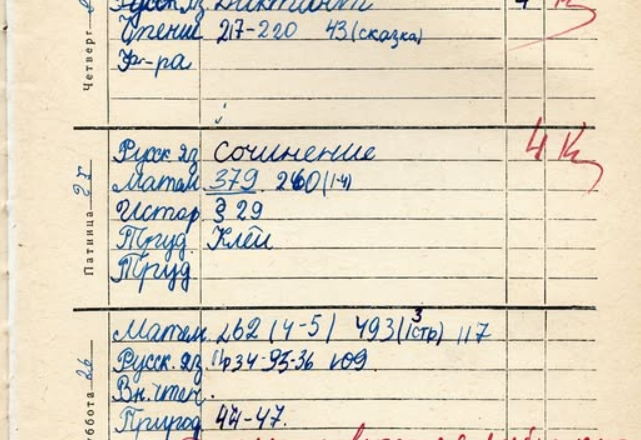 Четверг
Русск яз Диктант 4
Чтение 217-220 43 (сказка)
Ф-ра
Пятница 25
Русск яз сочинение 4
Матем 379 260 (1-4)
Истор § 29
Труд Клей
Труд
Суббота 26
Матем. 262 (4-5) 493 (1 стр) 3 117
Русск. яз. 109
Вн. чтен.
Природ 44-47.